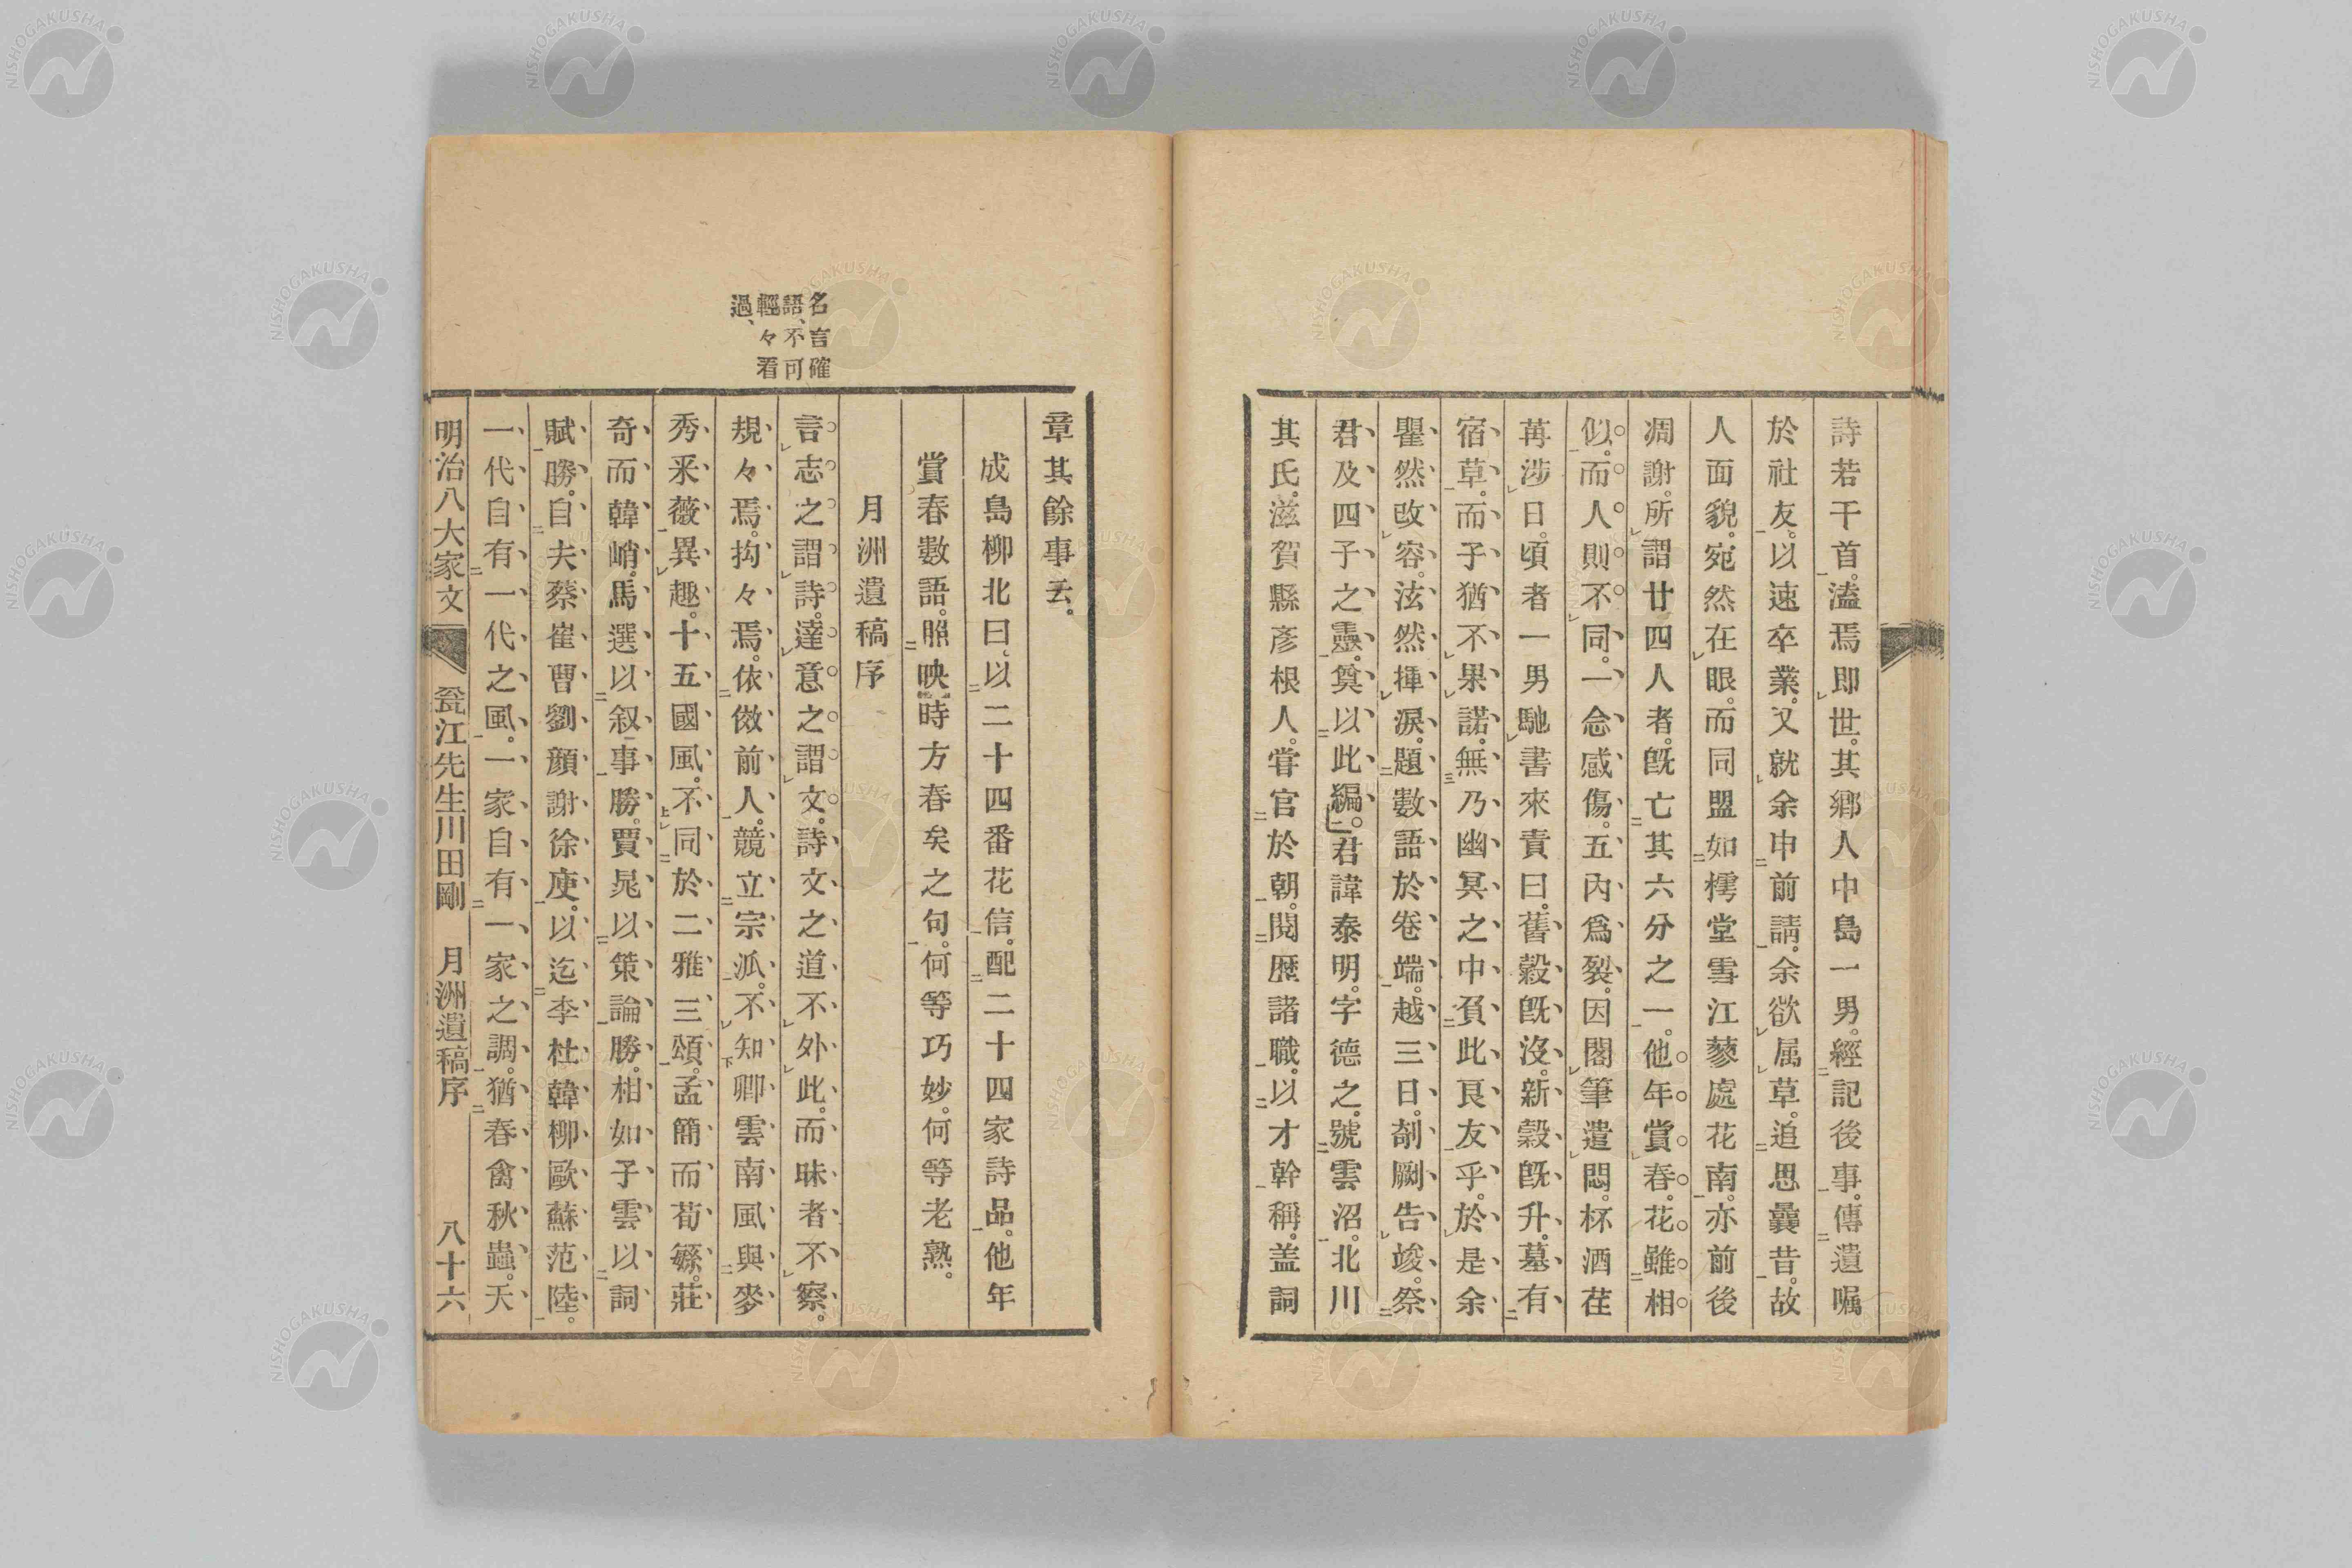 詩若干首。溘焉即世。其鄉人中島一男。經記後事。傳遺嘱
於社友。以速卒業。又就余申前請。余欲属草。追思曩昔。故
人面貌。宛然在眼。而同盟如樗堂雪江蓼處花南。亦前後
凋謝。所謂廿四人者。旣亡其六分之一。他年賞春。花雖相
似。而人則不同。一念感傷。五內爲裂。因閣筆遣悶。杯酒荏
苒涉日。頃者一男馳書來責曰。舊穀旣沒。新穀旣升。墓有
宿草。而子猶不果諾。無乃幽冥之中負此良友乎。於是余
瞿然改容。泫然揮淚。題數語於卷端。越三日。剞劂告竣。祭
君及四子之靈。奠以此編。君諱泰明。字德之。號雲沼。北川
其氏。滋賀縣彥根人。甞官於朝。閱歷諸職。以才幹稱。盖詞
章其餘事云。
成島柳北曰、以二十四番花信。配二十四家詩品。他年
賞春數語。照映時方春矣之句。何等巧妙。何等老熟。
月洲遺稿序
言志之謂詩。達意之謂文。詩文之道不外此。而昧者不察。
規々焉。拘々焉。依傚前人。競立宗派。不知卿雲南風與麥
秀釆薇異趣。十五國風。不同於二雅三頌。孟簡而荀繇。莊
奇而韓峭。馬選以叙事勝。賈晁以策論勝。相如子雲以詞
賦勝。自夫蔡崔曹劉顏謝徐庾。以迄李杜韓柳歐蘇范陸。
一代自有一代之風。一家自有一家之調。猶春禽秋蟲。天
名言確
語、不可
輕々看
過、
明治八大家文 甕江先生川田剛 月洲遺稿序 八十六
NISHOGAKUSHA